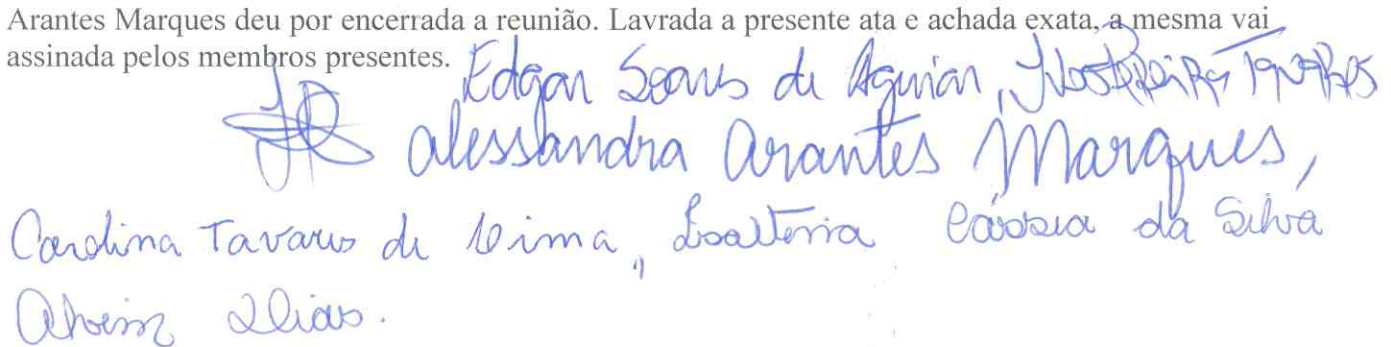 Arantes Marques deu por encerrada a reunião. Lavrada a presente ata e achada exata, a mesma vai
assinada pelos membros presentes.
Edgar Soares de Aguiar,
Alessandra Arantes Marques,
Carolina Tavares de Lima, Cássia da Silva